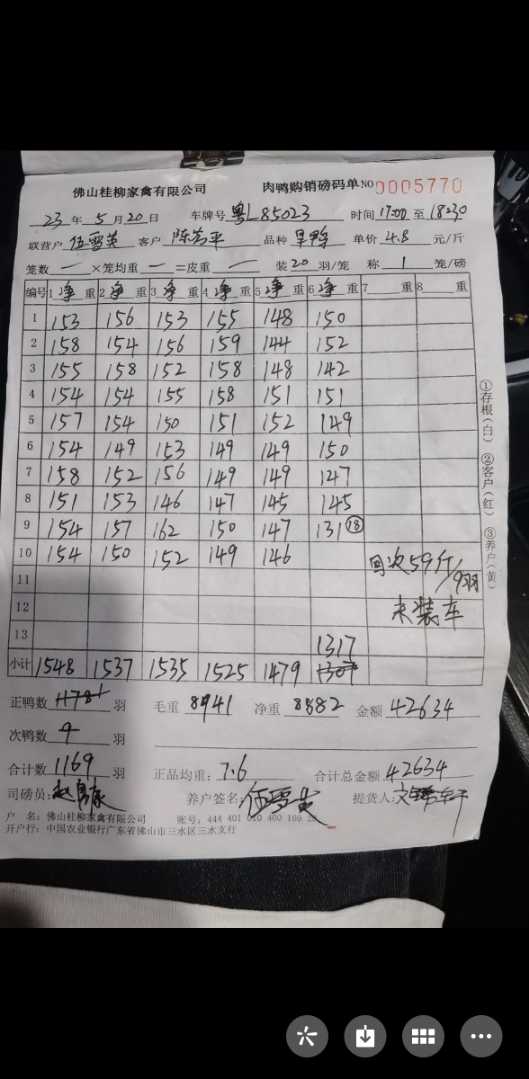 佛山桂柳家禽有限公司 肉鸭购销磅码单 NO 0005770
23 年 5 月 20 日 车牌号 粤L85023 时间 17:00 至 18:30
联营户 伍雪英 客户 品种 旱鸭 单价 4.8 元/斤
笼数 一 ×笼均重 一 =皮重 一 装 20 羽/笼 称 1 笼/磅
编号 1 净 重 2 净 重 3 净 重 4 净 重 5 净 重 6 净 重 7 重 8 重
1 153 156 153 155 148 150
2 158 154 156 159 144 152
3 155 158 152 158 148 142
4 154 154 155 158 151 151
5 157 154 150 151 152 149
6 154 149 153 149 149 150
7 158 152 156 149 149 147
8 151 153 146 147 145 145
9 154 157 162 150 147 131 ⑱
10 154 150 152 149 146
次59斤/9羽
11
12 未装车
13
1317
小计 1548 1537 1535 1525 1479 1307
正鸭数 羽 毛重 8941 净重 金额 42634
次鸭数 9 羽
合计数 1169 羽 正品均重: 7.6 合计总金额 42634
司磅员: 养户签名: 伍雪英 提货人:
户 名: 佛山桂柳家禽有限公司 账号: 444 401 010 400 169
开户行: 中国农业银行广东省佛山市三水区三水支行
①存根(白) ②客户(红) ③养户(黄)